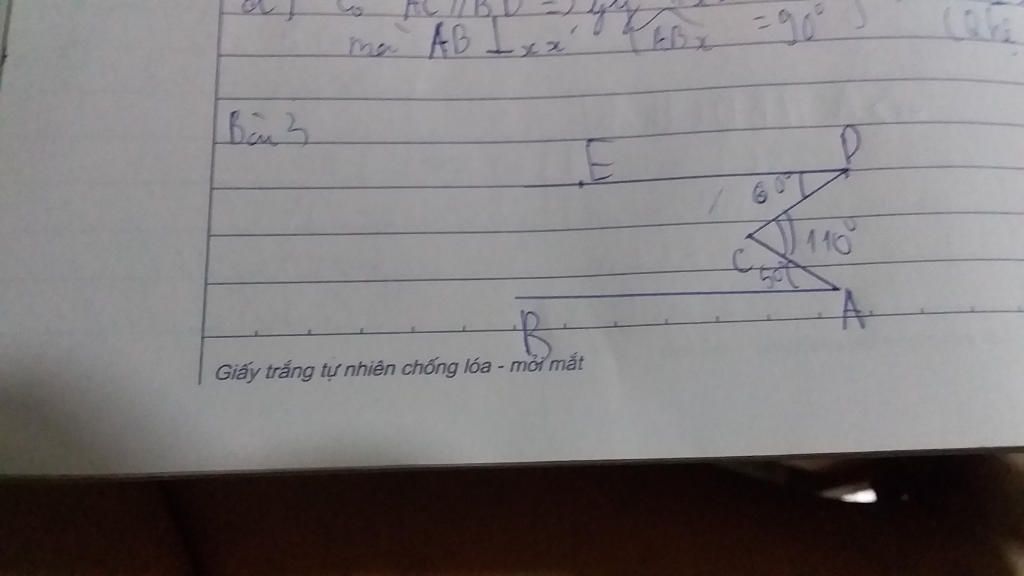 Có AC // BD =>
mà AB ⊥ xx' ( ABx = 90° )
Bài 3
E D
60°
C 110°
50°
B A
Giấy trắng tự nhiên chống lóa - mỏi mắt